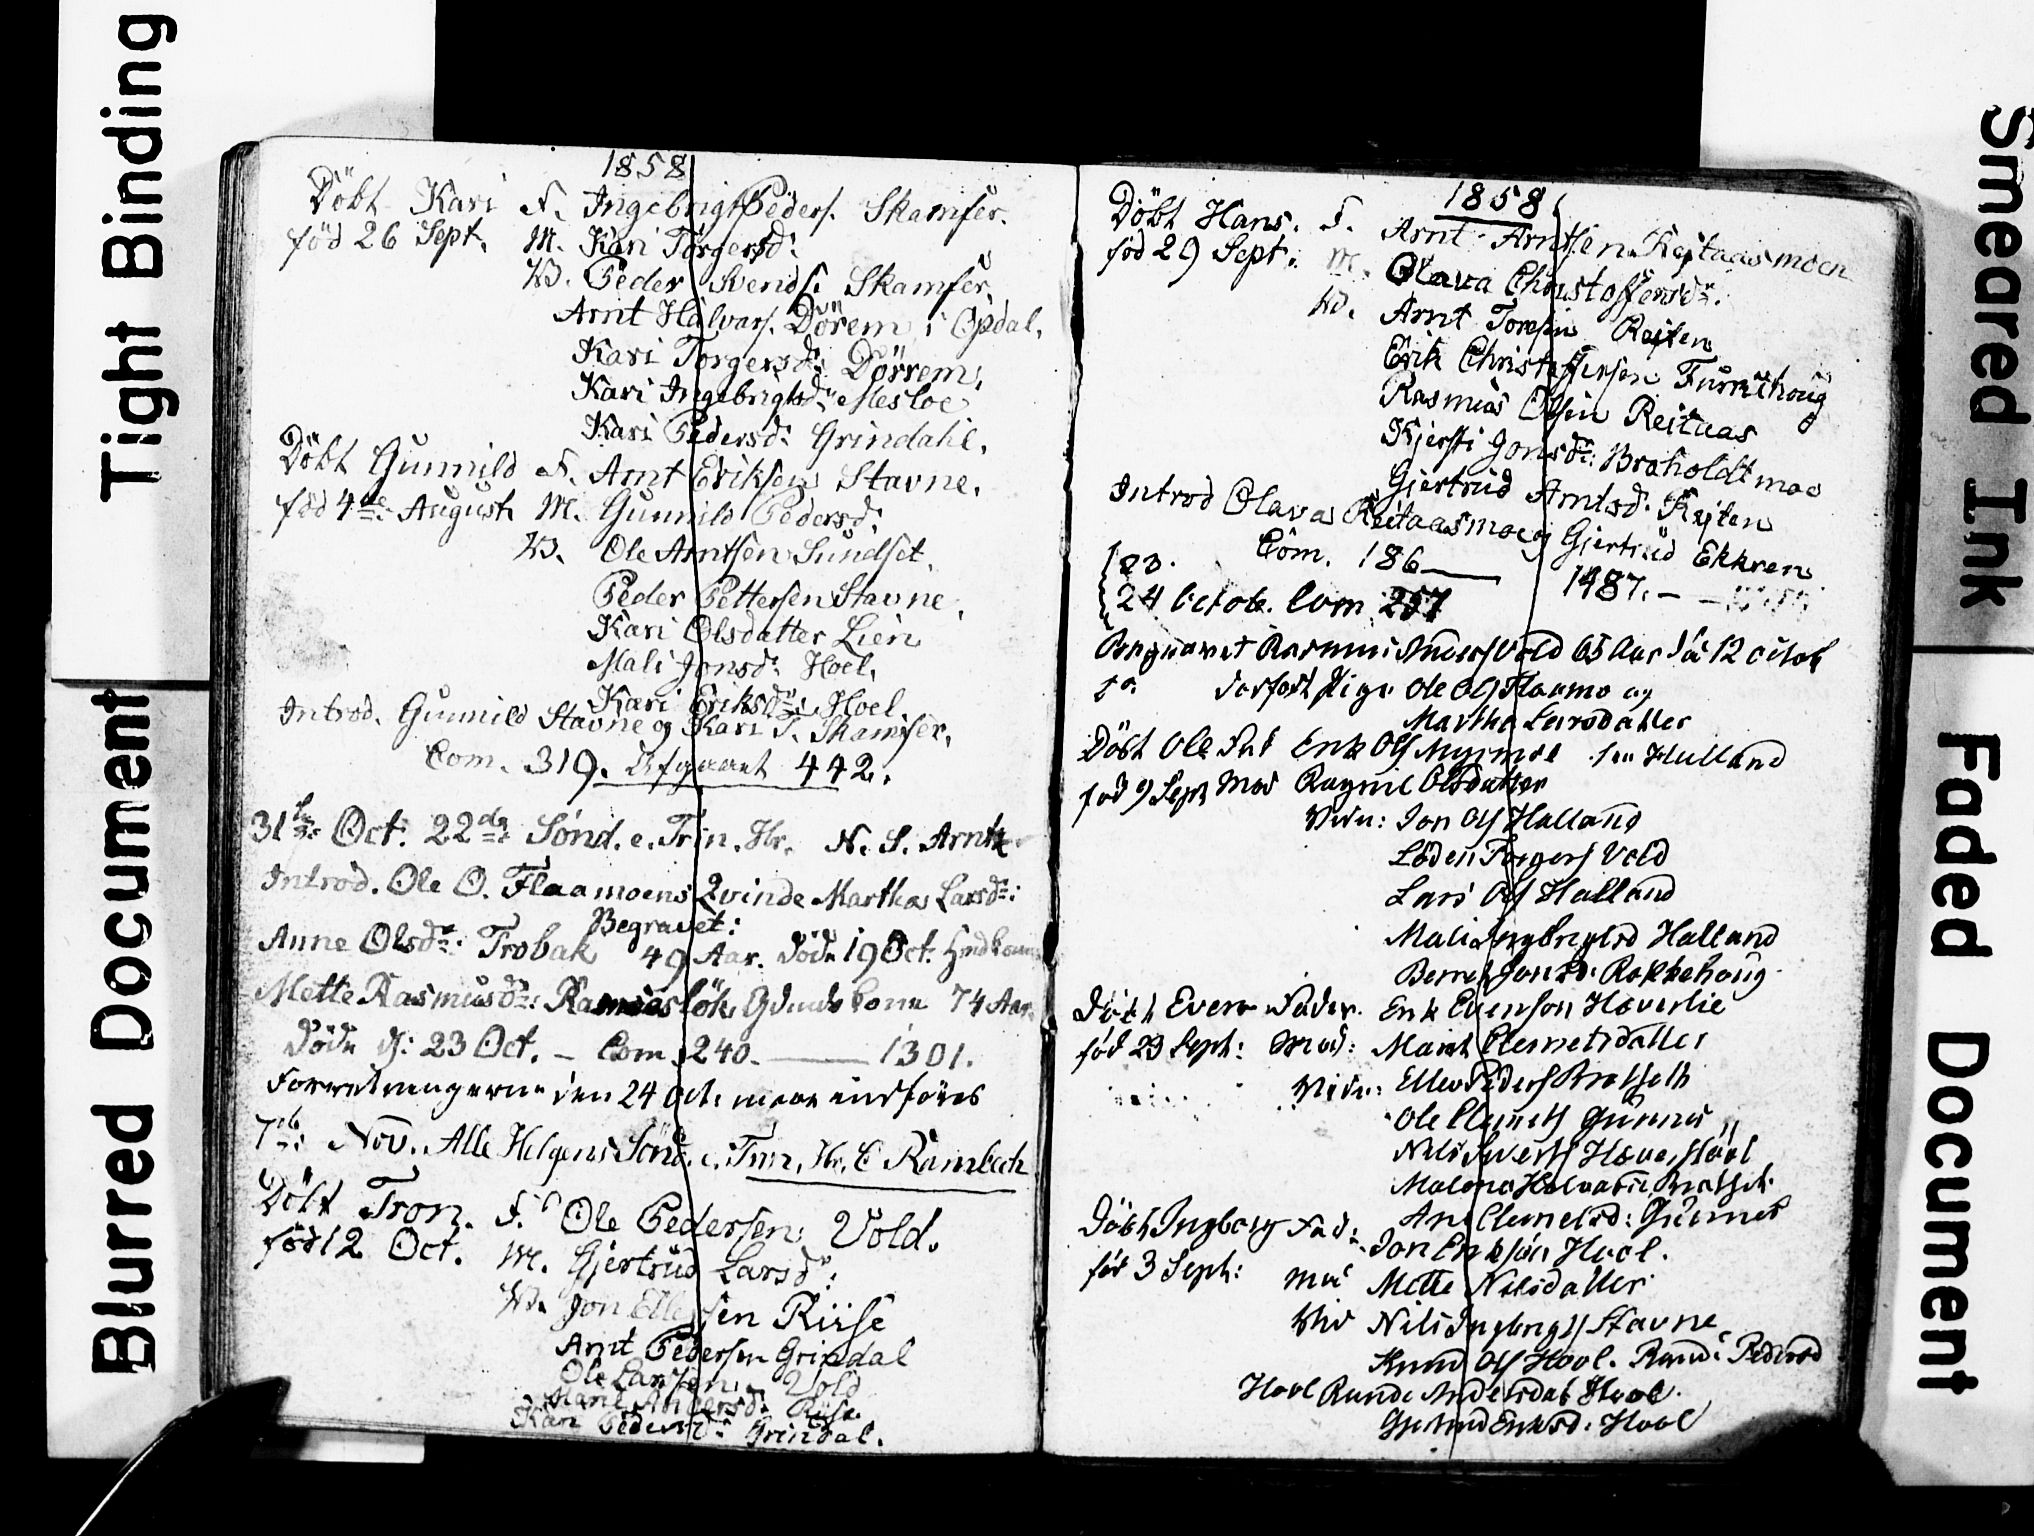 Tight Binding
Blurred Document
1858
Döbt Kari F. Ingebrigt Peders. Skamfer.
föd 26 Sept. M. Kari Torgersd:
W. Peder Svends: Skamfer
Arnt Halvars. Dörem i Opdal.
Kari Torgersd: Dörrem.
Kari Ingebrigtsd: Mesloe
Kari Pedersd: Grindahl.
Döbt Gunnild F. Arnt Eriksen Stavne.
föd 4de August M. Gunnild Pedersd:
W. Ole Arntsen Sundset.
Peder Pettersen Stavne.
Kari Olsdatter Lien
Mali Jonsd: Hoel.
Kari Eriksdr: Hoel
Introd. Gunnild Stavne og Kari T. Skamfer.
Com. 319. Ofgaaet 442.
31te Oct. 22de Sönd. e. Trin. Hr. N. S. Arntz
Introd. Ole O. Flaamoens Qvinde Martha Larsdr:
Begravet:
Anne Olsdr: Trobak 49 Aar. döde 19 Oct.
Mette Rasmusdr: 74 Aar.
döde d: 23 Oct. – Com. 240. — 1301.
Forretningerne den 24 Oct.
7de Nov. Alle Helgens Sönd. e. Trin. Hr. C Rambech
Döbt Tron. F. Ole Pedersen Vold.
föd 12 Oct. M. Gjertrud Larsdr:
W. Jon Ellefsen Riise
Arnt Pedersen Grindal
Ole Larssen Vold
Marit Andersd: Riise
Kari Pedersd: Grindal.
1858
Döbt Hans. F. Arnt Arntsen Reitaasmoen
föd 29 Sept: M. Olava Christoffersdr.
W. Arnt Reiten
Erik Christoffersen Furruhoug
Rasmus Olsen Reitaas
Kjersti Jonsdr: Broholdtmoe
Gjertrud Arntsd: Reiten
Introd Olava Reitaasmo og Gjertrud Ekkren
123. Com. 186 — 1487. –
24 Octob. Com 257
Begravet Rasmus Anders Vold 65 Aar 12 octob
Ole Ols Flaamo og
Martha Larsdatter
Döbt Ole Fad Erik Ols Halland
föd 9 Sept Mod Ragnil Olsdatter
Vidn: Jon Ols Halland
Loden Torgers Vold
Lars Ols Halland
Mali Ingebrigtsd Halland
Berret Jonsd: Rokkehoug
Döbt Even Fader. Erik Evensen Haverlie
föd 23 Sept: Mod: Marit Clemetsdatter
Vidn: Ellev Peders Bratseth
Ole Clemets Gunnes
Ane Clemetsd: Gunnes
Döbt Ingborg Fad: Jon Eriksen Hoel.
föd 3 Sept: Mod Mette Nilsdatter
Vid Nils Ingbrigts Stavne
Knud Ols Hoel. Randi Pedersd
Hoel Randi Andersdat Hoel
Gjertrud Eriksd: Hoel
Smeared Ink
Faded Document